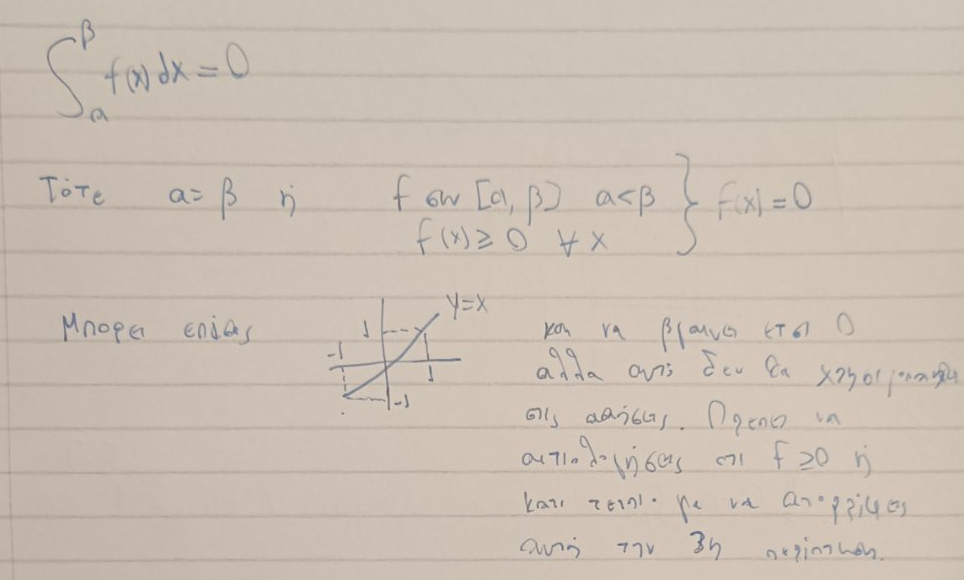 ∫_α^β f(x) dx = 0
Τότε α = β ή f συν [α, β] α<β } f(x) = 0
f(x) ≥ 0 ∀ x
Μπορει επίσης
y=x
1
-1
1
-1
και να βγαινει ετσι 0
αλλα αυτό δεν θα
στις ασκήσεις. Πρεπει να
αιτιολογήσεις οτι f ≥0 ή
κατι τετοιο με να απορρίψεις
αυτή την 3η περίπτωση.